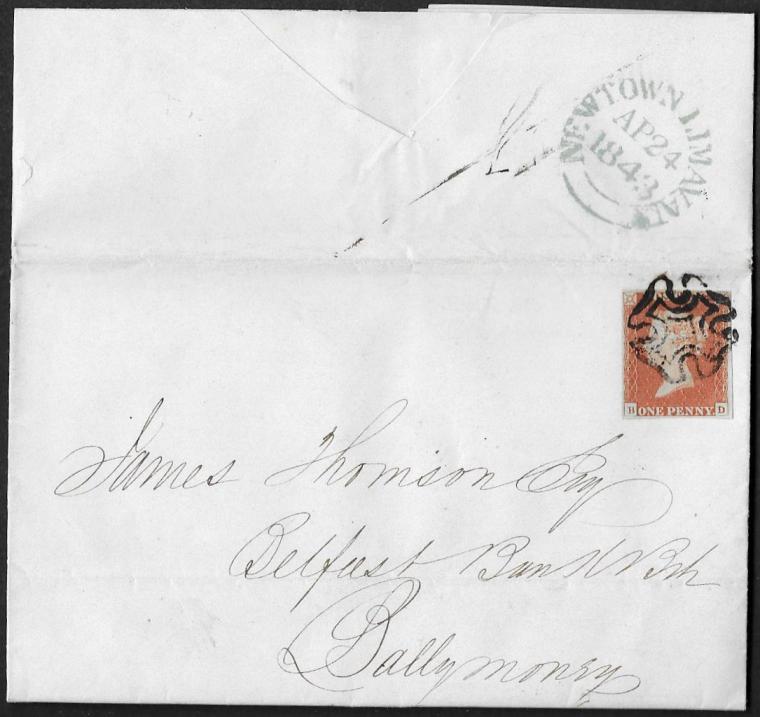 NEWTOWN LIMAVADY
AP24
1843
B ONE PENNY D
James Thomson Esq
Belfast Bank Bch
Ballymoney